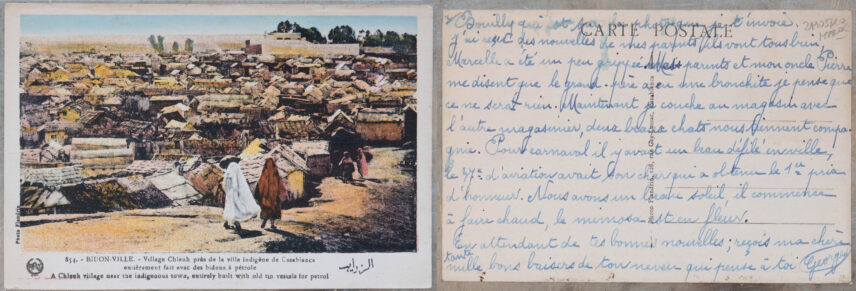 854. - BIDON-VILLE. - Village Chleuh près de la ville indigène de Casablanca
entièrement fait avec des bidons à pétrole
A Chleuh village near the indigenous town, entirely built with old tin vessels for petrol
الزرايب
Photo Flandrin
CARTE POSTALE
Bouilly qui est sur la photo que je t'envoie.
j'ai reçu des nouvelles de mes parents ils vont tous bien,
Marcelle a été un peu grippée. Mes parents et mon oncle Pierre
me disent que le grand-père a eu une bronchite je pense que
ce ne sera rien. Maintenant je couche au magasin avec
l'autre magasinier, deux beaux chats nous tiennent compa-
gnie. Pour carnaval il y avait un beau défilé en ville,
le 37e d'aviation avait son char qui a obtenu le 1er prix
d'honneur. Nous avons un beau soleil, il commence
à faire chaud, le mimosa est en fleur.
En attendant de tes bonnes nouvelles, reçois ma chère
tante mille bons baisers de ton neveu qui pense à toi Georges